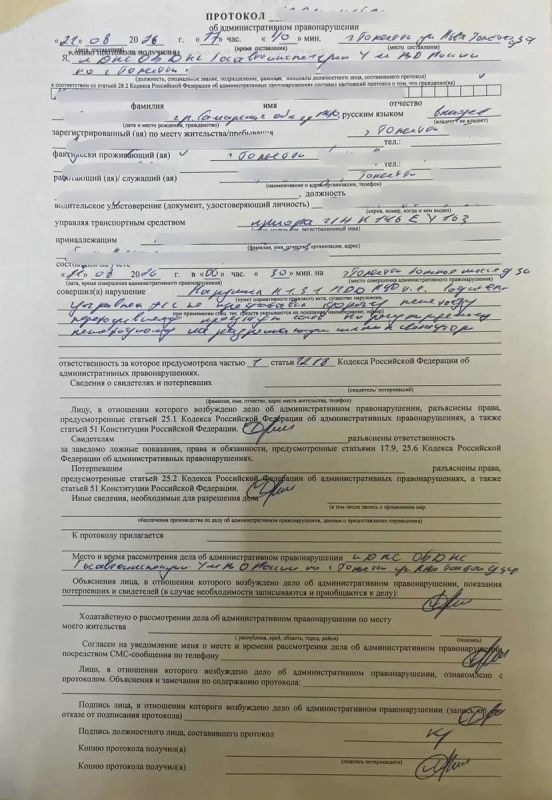 ПРОТОКОЛ
об административном правонарушении
«21» 08 2026 г. 17 час. 40 мин. г. Тольятти ул.
(дата составления) (время составления) (место составления)
копию протокола получил(а)
Я,
ГИБДД Госавтоинспекции У МВД России
по г. Тольятти
(должность, специальное звание, подразделение, фамилия, инициалы должностного лица, составившего протокол)
в соответствии со статьей 28.2 Кодекса Российской Федерации об административных правонарушениях составил настоящий протокол о том, что гражданин(ка)
фамилия имя отчество
гр. Самарская обл русским языком владеет
(дата и место рождения, гражданство) (владеет/ не владеет)
зарегистрированный (ая) по месту жительства/пребывания г. Тольятти
тел.:
фактически проживающий (ая) г. Тольятти
тел.:
работающий (ая)/ служащий (ая) Тольятти
(наименование и адрес организации, телефон)
должность
водительское удостоверение (документ, удостоверяющий личность)
(серия, номер, когда и кем выдан)
управляя транспортным средством приора г/н
принадлежащим
(фамилия, имя, отчество, организации, адрес)
состоящим на учете
08 2026 г. в 00 час. 30 мин. на г. Тольятти Южное шоссе
(дата, время совершения административного правонарушения) (место совершения административного правонарушения)
совершил(а) нарушение Нарушил п. 13.1 ПДД РФ
(пункт нормативного правового акта, существо нарушения,
управляя ТС не предоставил дорогу пешеходу
при применении спец. тех. средств указываются их показания, наименование, номер)
переходившему проезжую часть по
пешеходному на разрешающий сигнал светофора
ответственность за которое предусмотрена частью 1 статьи 12.18 Кодекса Российской Федерации об
административных правонарушениях.
Сведения о свидетелях и потерпевших
(свидетель/ потерпевший)
(фамилия, имя, отчество, адрес места жительства, телефон)
Лицу, в отношении которого возбуждено дело об административном правонарушении, разъяснены права,
предусмотренные статьей 25.1 Кодекса Российской Федерации об административных правонарушениях, а также
статьей 51 Конституции Российской Федерации.
Свидетелям разъяснены ответственность
за заведомо ложные показания, права и обязанности, предусмотренные статьями 17.9, 25.6 Кодекса Российской
Федерации об административных правонарушениях.
Потерпевшим разъяснены права,
предусмотренные статьей 25.2 Кодекса Российской Федерации об административных правонарушениях, а также
статьей 51 Конституции Российской Федерации.
Иные сведения, необходимые для разрешения дела
(в том числе запись о применении мер
обеспечения производства по делу об административном правонарушении, данные о предоставлении переводчика)
К протоколу прилагается
Место и время рассмотрения дела об административном правонарушении
Госавтоинспекции У МВД России по г. Тольятти
Объяснения лица, в отношении которого возбуждено дело об административном правонарушении, показания
потерпевших и свидетелей (в случае необходимости записываются и приобщаются к делу):
Ходатайствую о рассмотрении дела об административном правонарушении по месту
моего жительства
(республика, край, область, город, район) (подпись)
Согласен на уведомление меня о месте и времени рассмотрения дела об административном правонарушении
посредством СМС-сообщения по телефону
Лицо, в отношении которого возбуждено дело об административном правонарушении, ознакомлено с
протоколом. Объяснения и замечания по содержанию протокола:
Подпись лица, в отношении которого возбуждено дело об административном правонарушении (запись об
отказе от подписания протокола)
Подпись должностного лица, составившего протокол
Копию протокола получил(а)
(подпись потерпевшего)
Копию протокола получил(а)